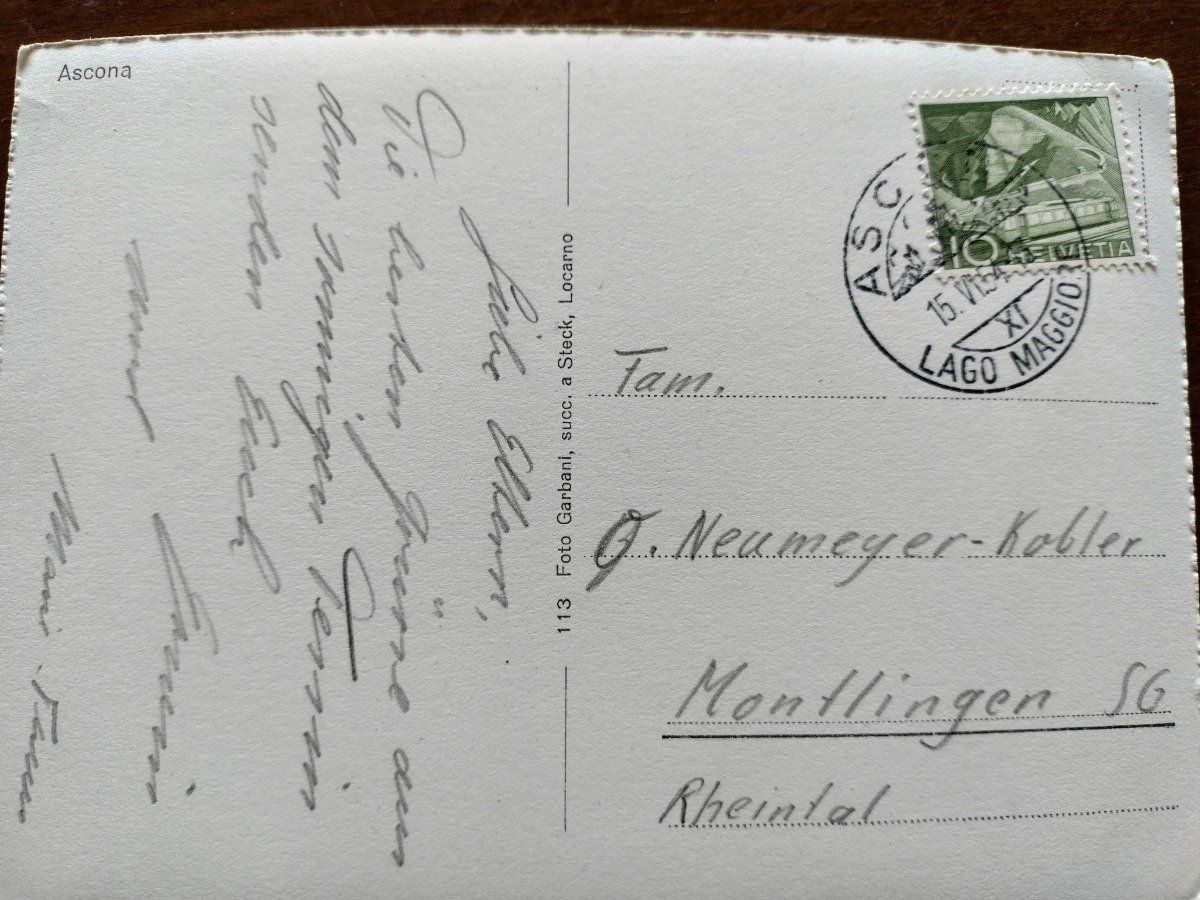 Ascona
Liebe Eltern,
Die besten Grüsse aus
dem sonnigen Tessin
senden Euch
113 Foto Garbani, succ. a Steck, Locarno
10 HELVETIA
ASC
XI
LAGO MAGGIORE
Fam.
J. Neumeyer-Kobler
Montlingen SG
Rheintal